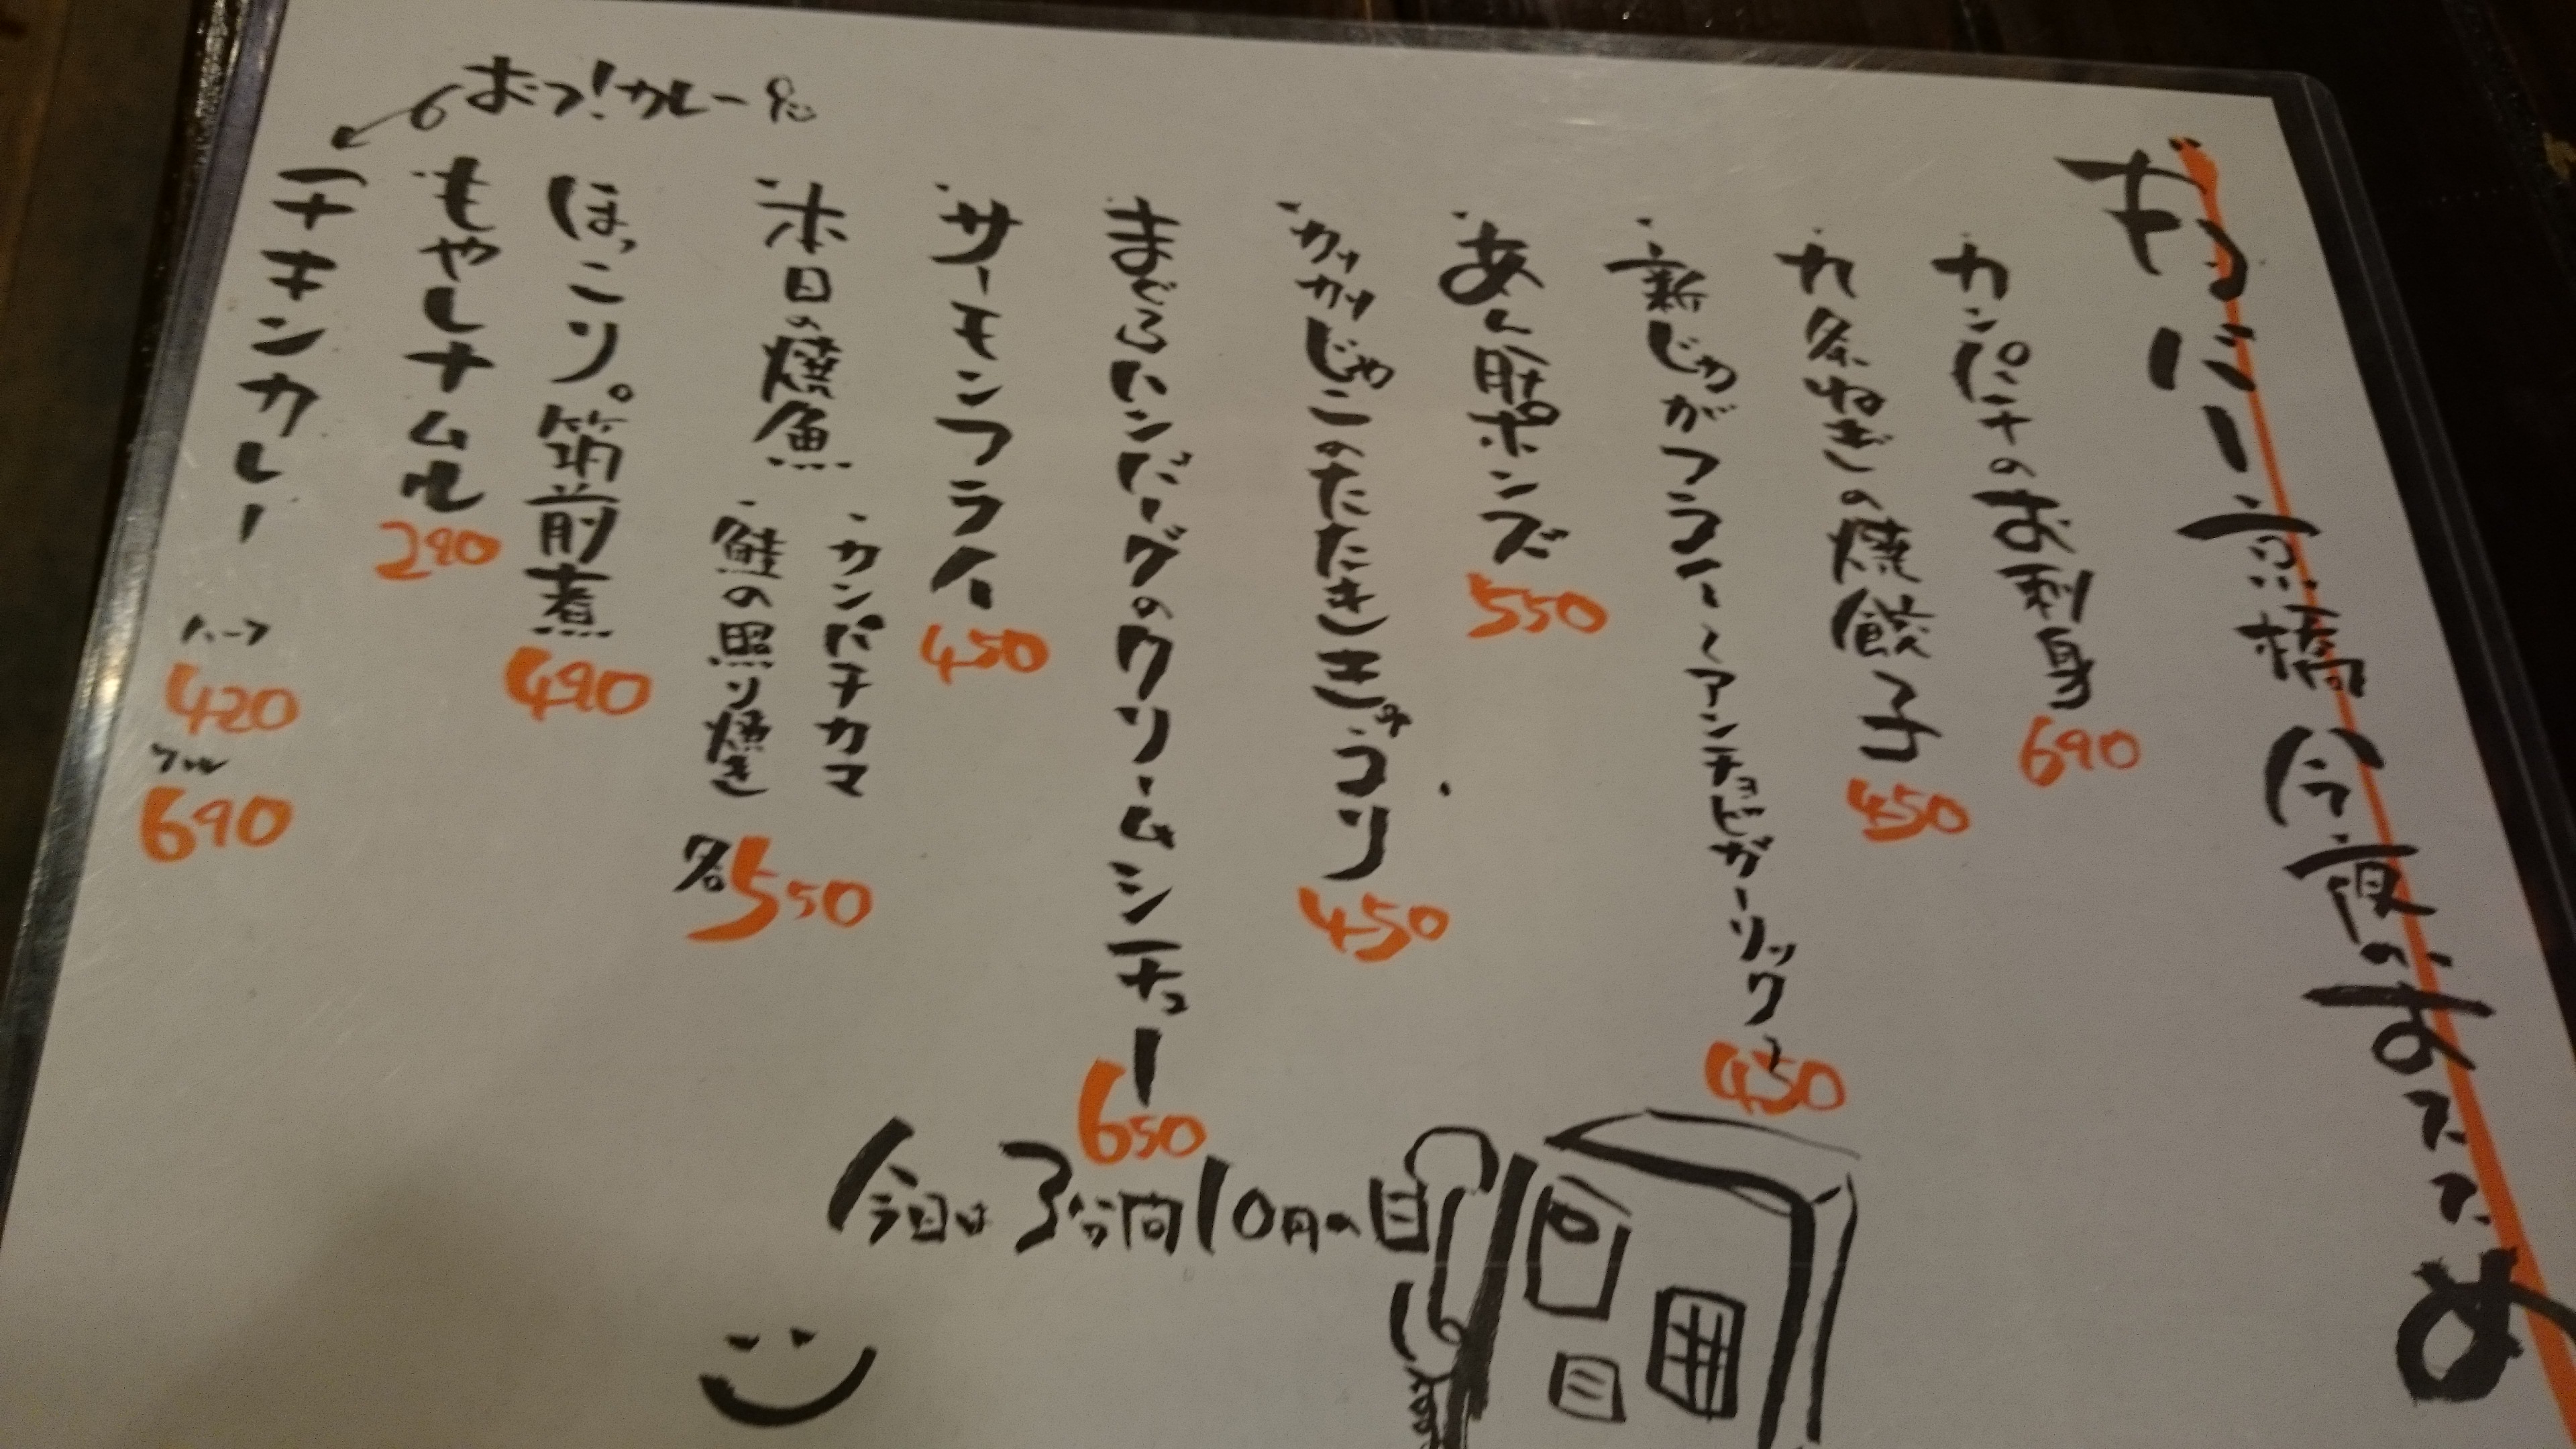 おつ!カレー
わばー京橋 今夜のおススメ
・カンパチのお刺身 690
・九条ねぎの焼餃子 450
・新じゃがフライ〜アンチョビガーリック〜 450
・あん肝ポンズ 550
・カリカリじゃこのたたききゅうり 450
まぐろハンバーグのクリームシチュー 650
・サーモンフライ 450
・本日の焼魚
・カンパチカマ
・鮭の照り焼き 各550
ほっこり。筑前煮 490
もやしナムル 290
チキンカレー ハーフ 420 フル 690
今日は3分間10円の日